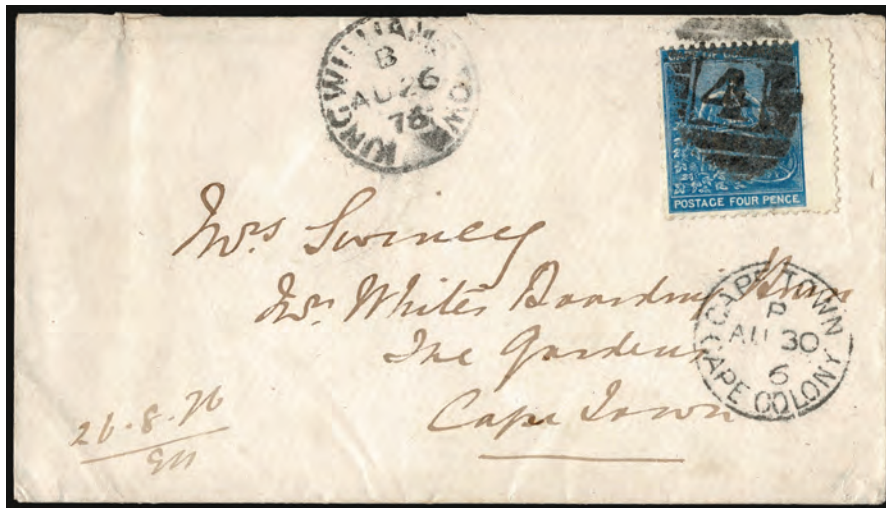 KING WILLIAMS TOWN
B
AU 26
76
CAPE OF GOOD
4
POSTAGE FOUR PENCE
Mrs Swiney
Mrs White's Boarding House
The Gardens
Cape Town
CAPE TOWN
P
AU 30
6
CAPE COLONY
26.8.76